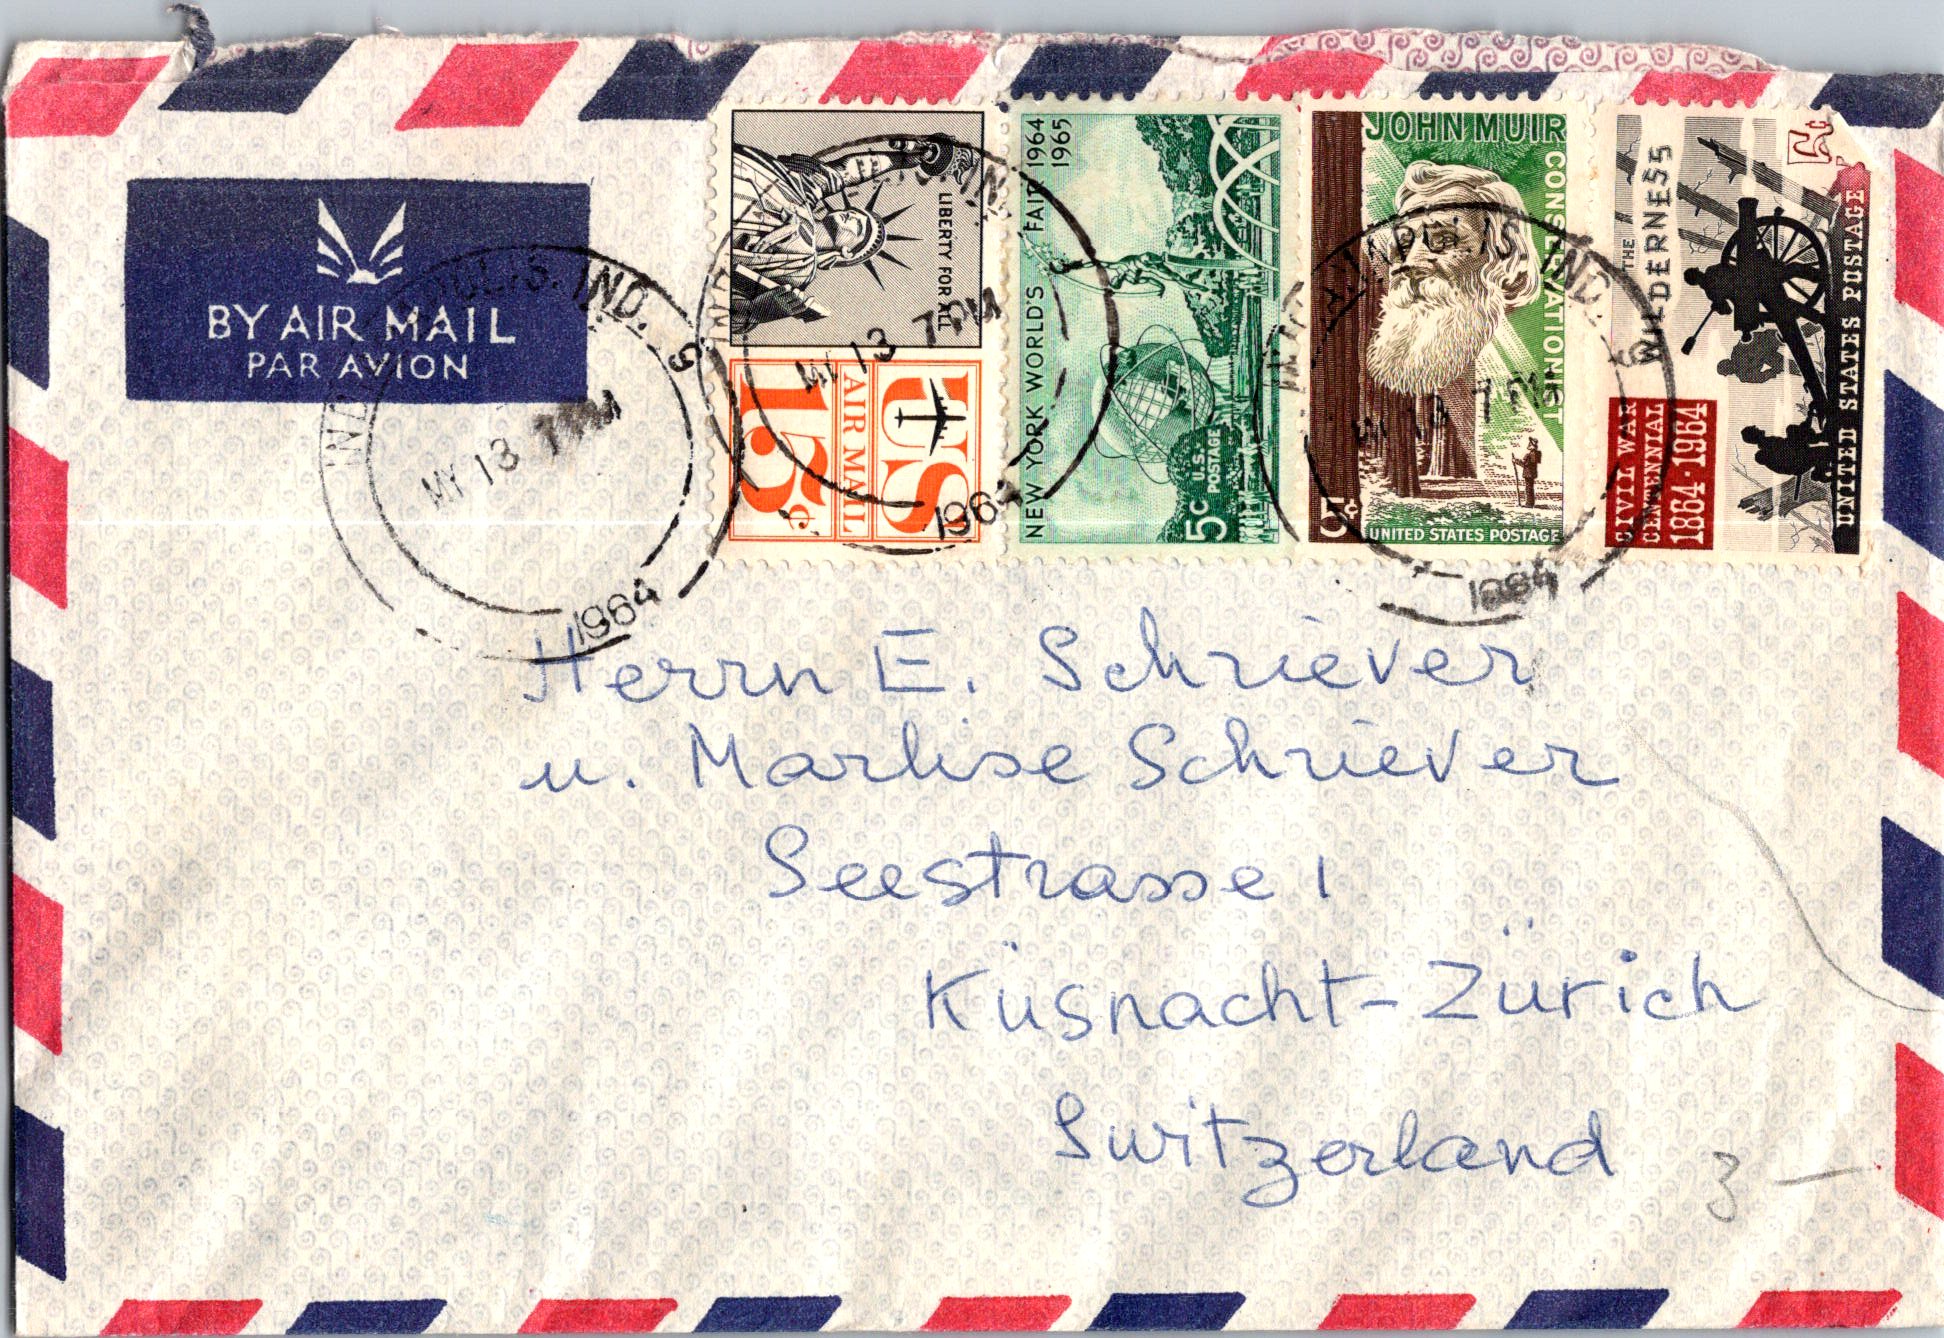 BY AIR MAIL
PAR AVION
INDIANAPOLIS, IND. 9
MY 13 7 PM
1964
LIBERTY FOR ALL
US
AIR MAIL
15¢
MY 13 7 PM
1964
NEW YORK WORLD'S FAIR 1964
1965
U.S.
POSTAGE
5c
JOHN MUIR
CONSERVATIONIST
5¢
UNITED STATES POSTAGE
MY 13 7 PM
1964
THE
WILDERNESS
CIVIL WAR
CENTENNIAL
1864-1964
UNITED STATES POSTAGE
Herrn E. Schriever
u. Marlise Schriever
Seestrasse 1
Küsnacht-Zürich
Switzerland
3 —